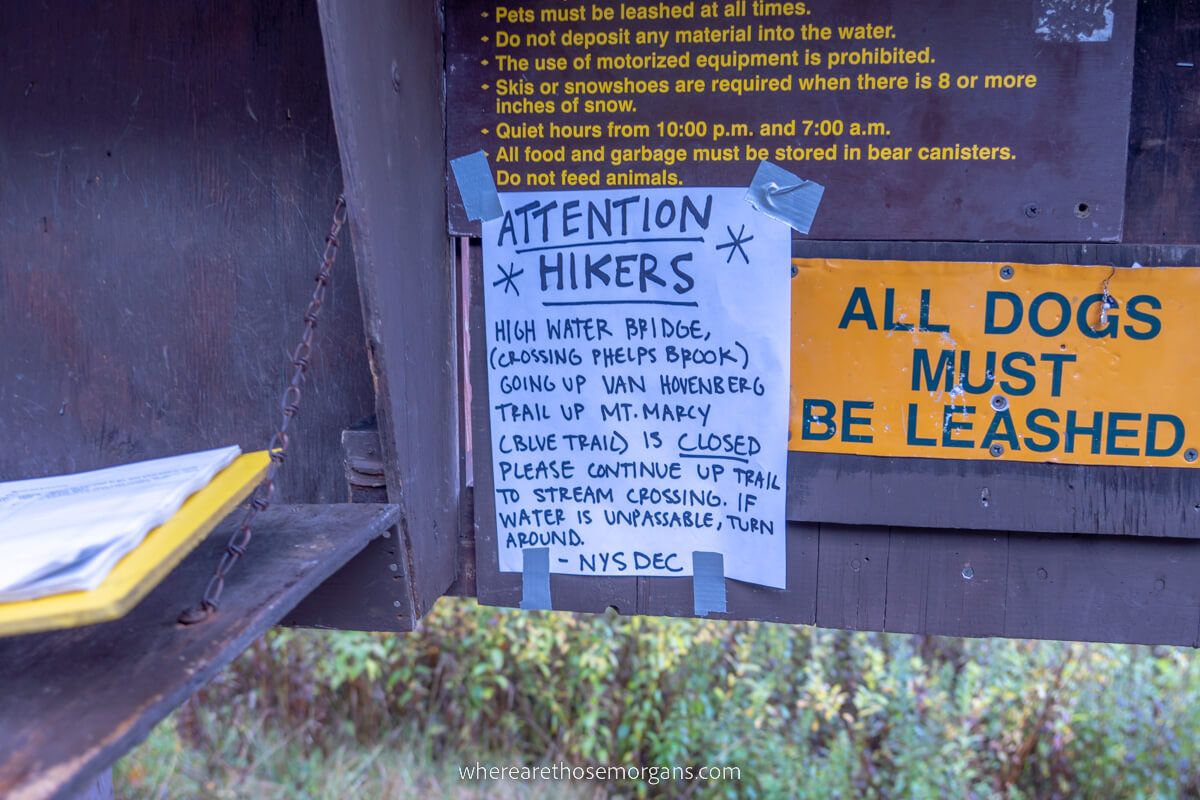 • Pets must be leashed at all times.
• Do not deposit any material into the water.
• The use of motorized equipment is prohibited.
• Skis or snowshoes are required when there is 8 or more
inches of snow.
• Quiet hours from 10:00 p.m. and 7:00 a.m.
• All food and garbage must be stored in bear canisters.
Do not feed animals.
ATTENTION
* HIKERS *
HIGH WATER BRIDGE,
(CROSSING PHELPS BROOK)
GOING UP VAN HOVENBERG
TRAIL UP MT. MARCY
(BLUE TRAIL) IS CLOSED
PLEASE CONTINUE UP TRAIL
TO STREAM CROSSING. IF
WATER IS UNPASSABLE, TURN
AROUND.
- NYS DEC
ALL DOGS
MUST
BE LEASHED
wherearethosemorgans.com